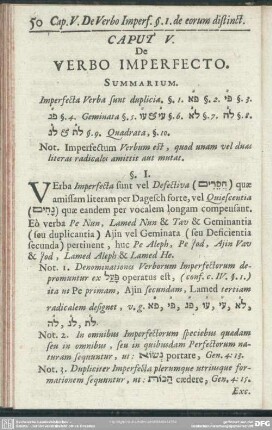 50 Cap. V. De Verbo Imperf. §. 1. de eorum distinct.
CAPUT V.
De
VERBO IMPERFECTO.
SUMMARIUM.
Imperfecta Verba sunt duplicia, §. 1. פא §. 2. פי §. 3.
פנ §. 4. Geminata §. 5. עו & עי §. 6. לא §. 7. לה §. 8.
לן & לת §. 9. Quadrata, §. 10.
Not. Imperfectum Verbum est, quod unam vel duas
literas radicales amittit aut mutat.
§. I.
VErba Imperfecta sunt vel Defectiva (חסרים) quæ
amissam literam per Dagesch forte, vel Quiescentia
(נחים) quæ eandem per vocalem longam compensant.
Eò verba Pe Nun, Lamed Nun & Tav & Geminantia
(seu duplicantia) Ajin vel Geminata (seu Deficientia
secunda) pertinent, huc Pe Aleph, Pe Jod, Ajin Vav
& Jod, Lamed Aleph & Lamed He.
Not. 1. Denominationes Verborum Imperfectorum de-
promuntur ex פעל operatus est, (conf. c. IV. §. 1.)
ita ut Pe primam, Ajin secundam, Lamed tertiam
radicalem designet, v. g. פא, פי, פנ, עו, עי, לא,
לה, לן, לת
Not. 2. In omnibus Imperfectorum speciebus quædam
seu in omnibus, seu in quibusdam Perfectorum na-
turam sequuntur, ut: נשוא portare, Gen. 4:13.
Not. 3. Dupliciter Imperfecta plerumque utriusque for-
mationem sequuntur, ut: הכות cædere, Gen. 4:15.
Exc.